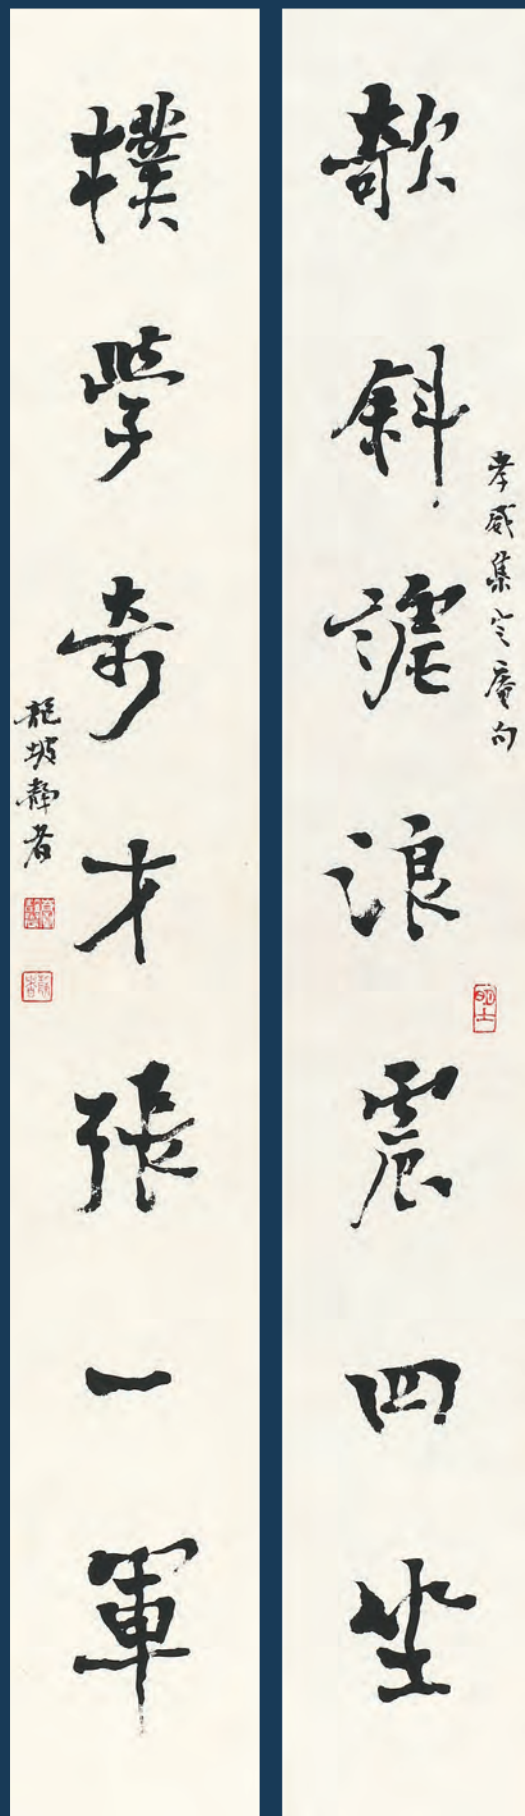 欹斜謔浪震四坐
孝威集定庵句
樸學奇才張一軍
龍坡靜者